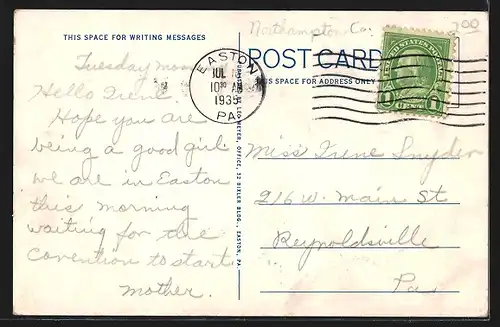 THIS SPACE FOR WRITING MESSAGES
Tuesday morn
Hello Irene.
Hope you are
being a good girl
we are in Easton
this morning
waiting for the
Convention to start
mother.
Northampton Co.
3.00
POST CARD
THIS SPACE FOR ADDRESS ONLY
EASTON
JUL
10 30 AM
1935
PA
UNITED STATES POSTAGE
1
1
Miss Irene Snyder
216 W. Main St
Reynoldsville
Pa
OFFICE, 32 BUTLER BLDG., EASTON, PA.